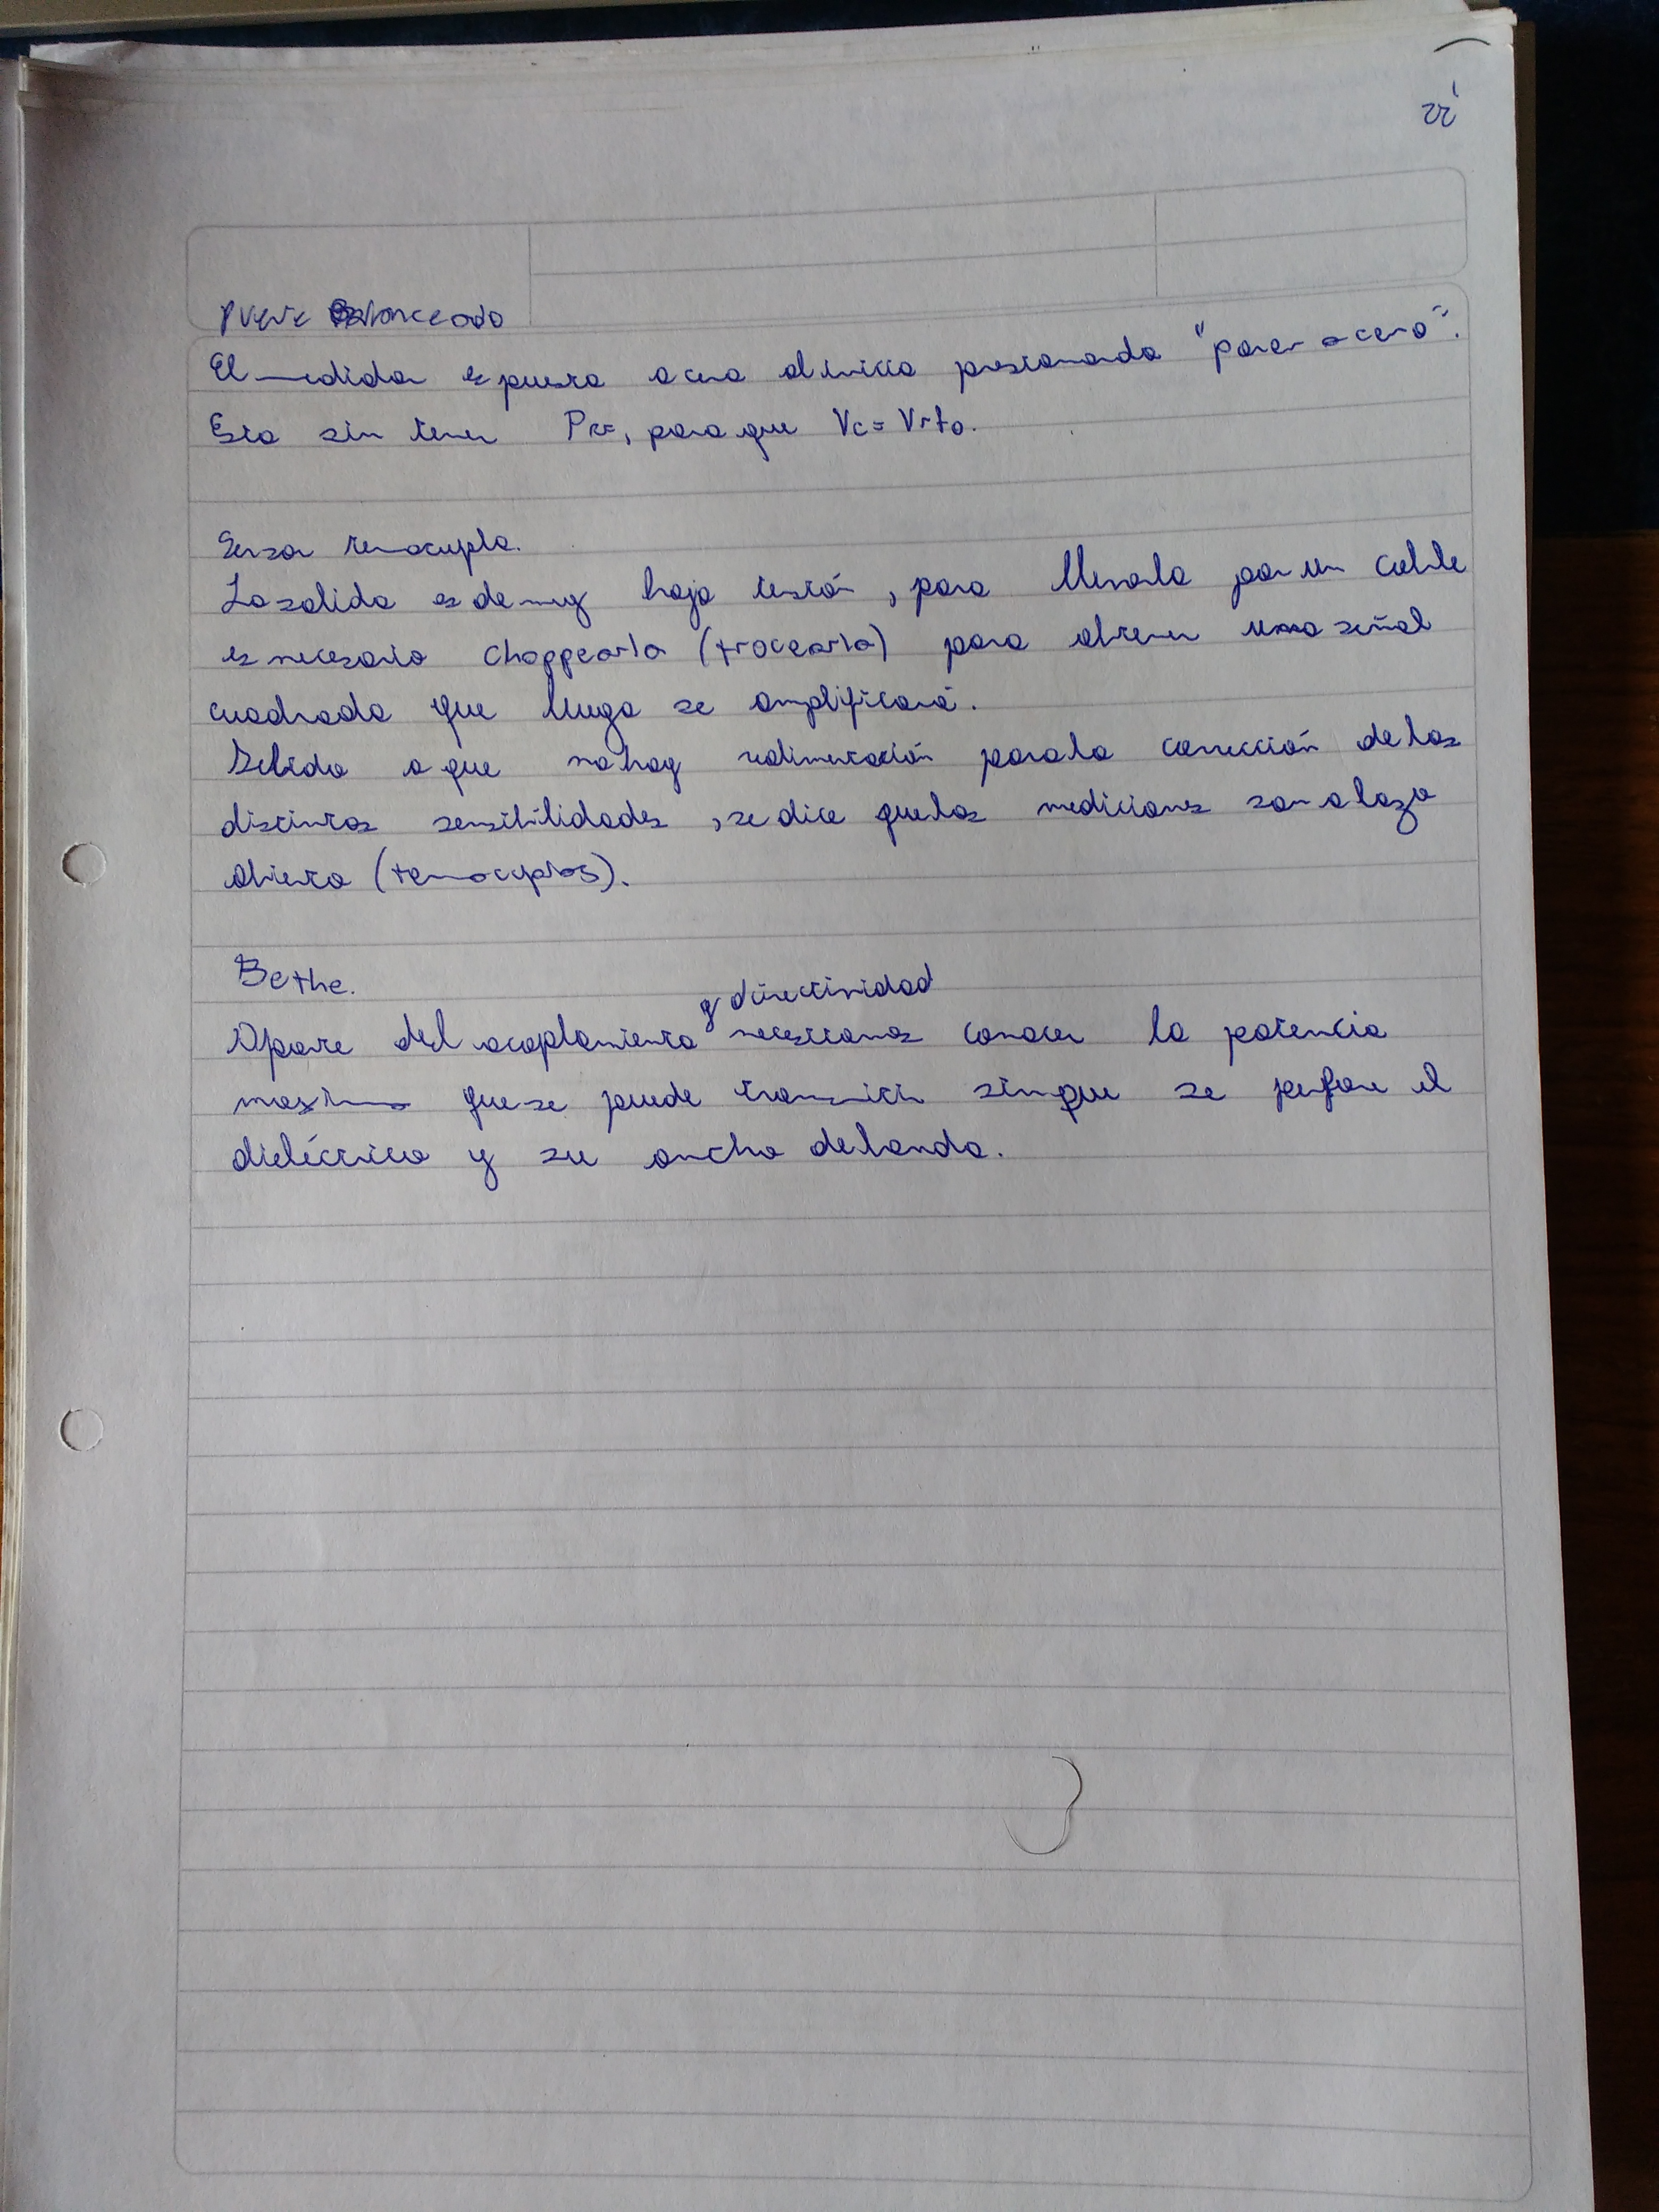 22'
Puente Balanceado
El medidor es puesto a cero al inicio presionando "poner a cero".
Esto sin tener PRF, para que Vc = Vrfo.
Sensor termocupla.
La salida es de muy baja tensión, para llevarla por un cable
es necesario choppearla (trocearla) para obtener una señal
cuadrada que luego se amplificará.
Debido a que no hay realimentación para la corrección de las
distintas sensibilidades, se dice que las mediciones son a lazo
abierto (termocuplas).
Bethe.
y directividad
Aparte del acoplamiento necesitamos conocer la potencia
maxima que se puede transmitir sin que se perfore el
dieléctrico y su ancho de banda.